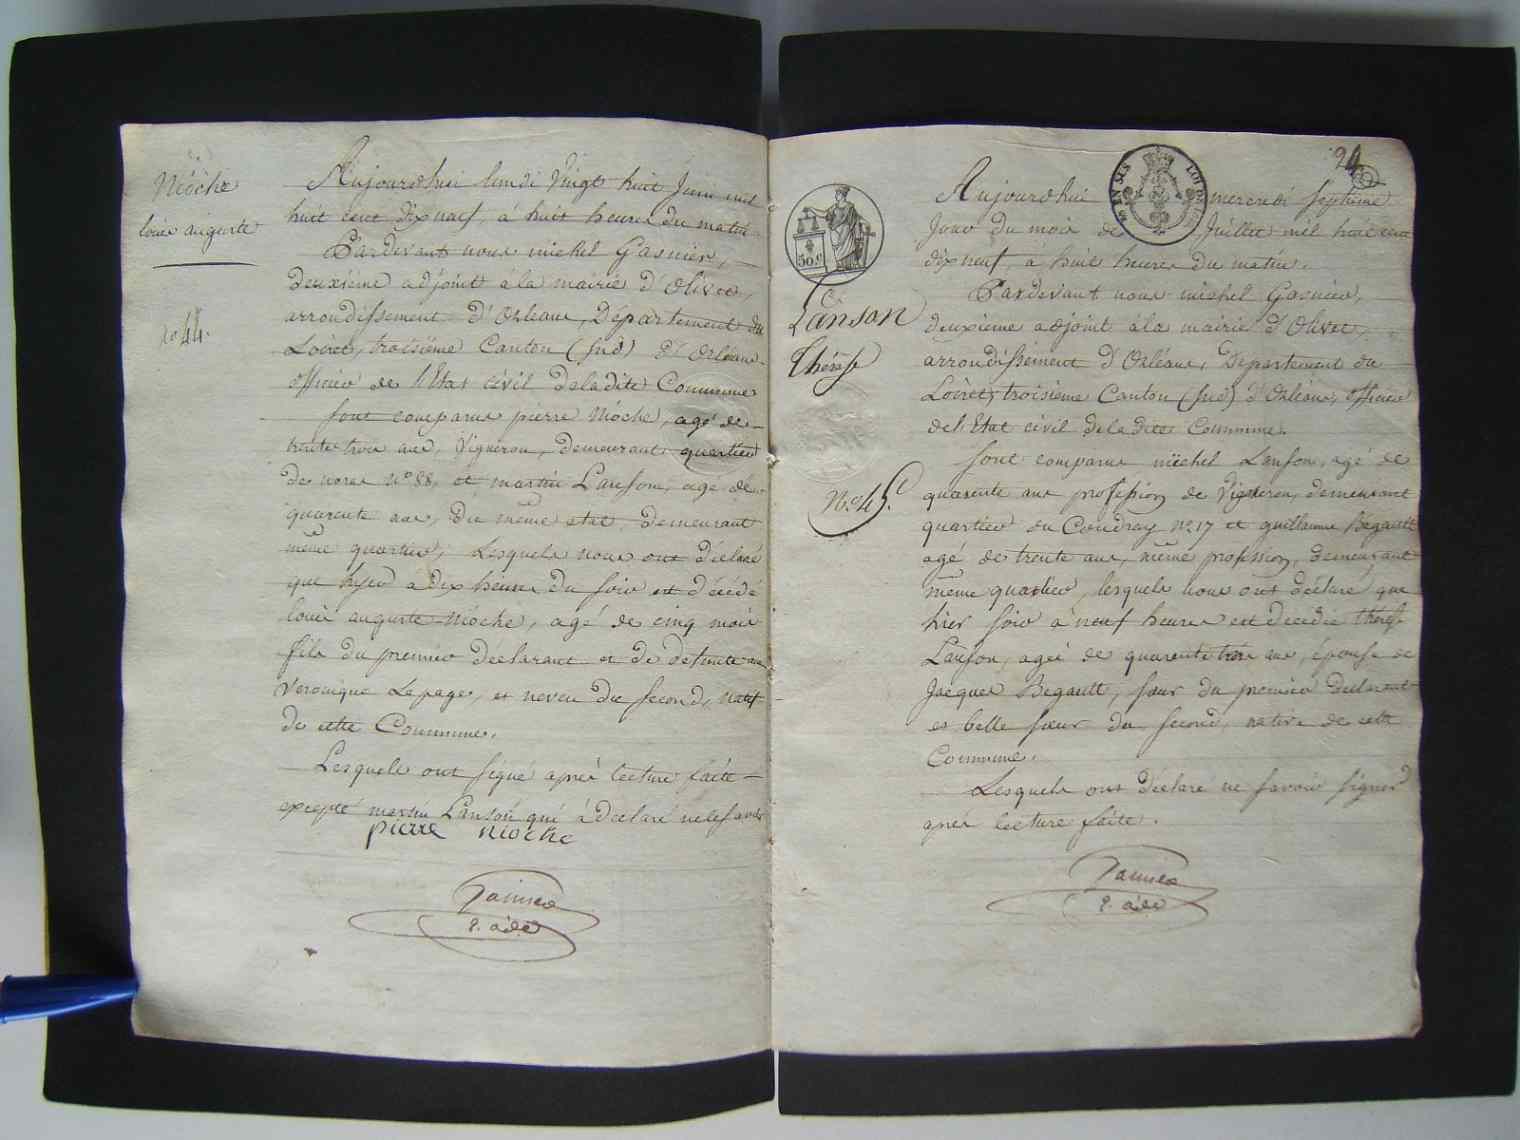 Nioche
louis auguste
no 44.
Aujourdhui lundi Vingt huit Juin mil
huit cent dix neuf, à huit heures du matin
Pardevant nous michel Gasnier,
deuxième adjoint à la mairie d'Olivet,
arrondissement d'Orléans, Département du
Loiret, troisième Canton (sud) d'Orléans
officier de l'Etat civil de la dite Commune
sont comparus pierre Nioche, agé de
trente trois ans, Vigneron, demeurant quartier
de nores No 88, et martin Lanson, agé de
quarente ans, du même etat, demeurant
même quartier, Lesquels nous ont déclaré
que hyer a dix heures du soir est décédé
louis auguste Nioche, agé de cinq mois
fils du premier declarant et de defunte
Veronique Lepage, et neveu du second, natif
de cette Commune.
Lesquels ont signé après lecture faite
excepté martin Lanson qui à declaré ne le savoir
pierre nioche
2. adt
50 c.
LOI DE
94
Lanson
Thérèse
No. 45.
Aujourdhui mercredi septième
Jour du mois de Juillet mil huit cent
dix neuf, à huit heures du matin.
Pardevant nous michel Gasnier,
deuxieme adjoint à la mairie d'Olivet,
arrondissement d'Orléans, Departement du
Loiret, troisième Canton (sud) d'Orléans, officier
de l'Etat civil de la dite Commune.
sont comparus michel Lanson, agé de
quarente ans profession de Vigneron, demeurant
quartier du Coudray No. 17 et guillaume Bégault
agé de trente ans, même profession, demeurant
même quartier, lesquels nous ont déclaré que
hier soir à neuf heures est decedée thérèse
Lanson, agée de quarente trois ans, épouse de
Jacques Begault, sœur du premier declarant
et belle sœur du second, native de cette
Commune.
Lesquels ont déclaré ne savoir signer
après lecture faite.
2. adt